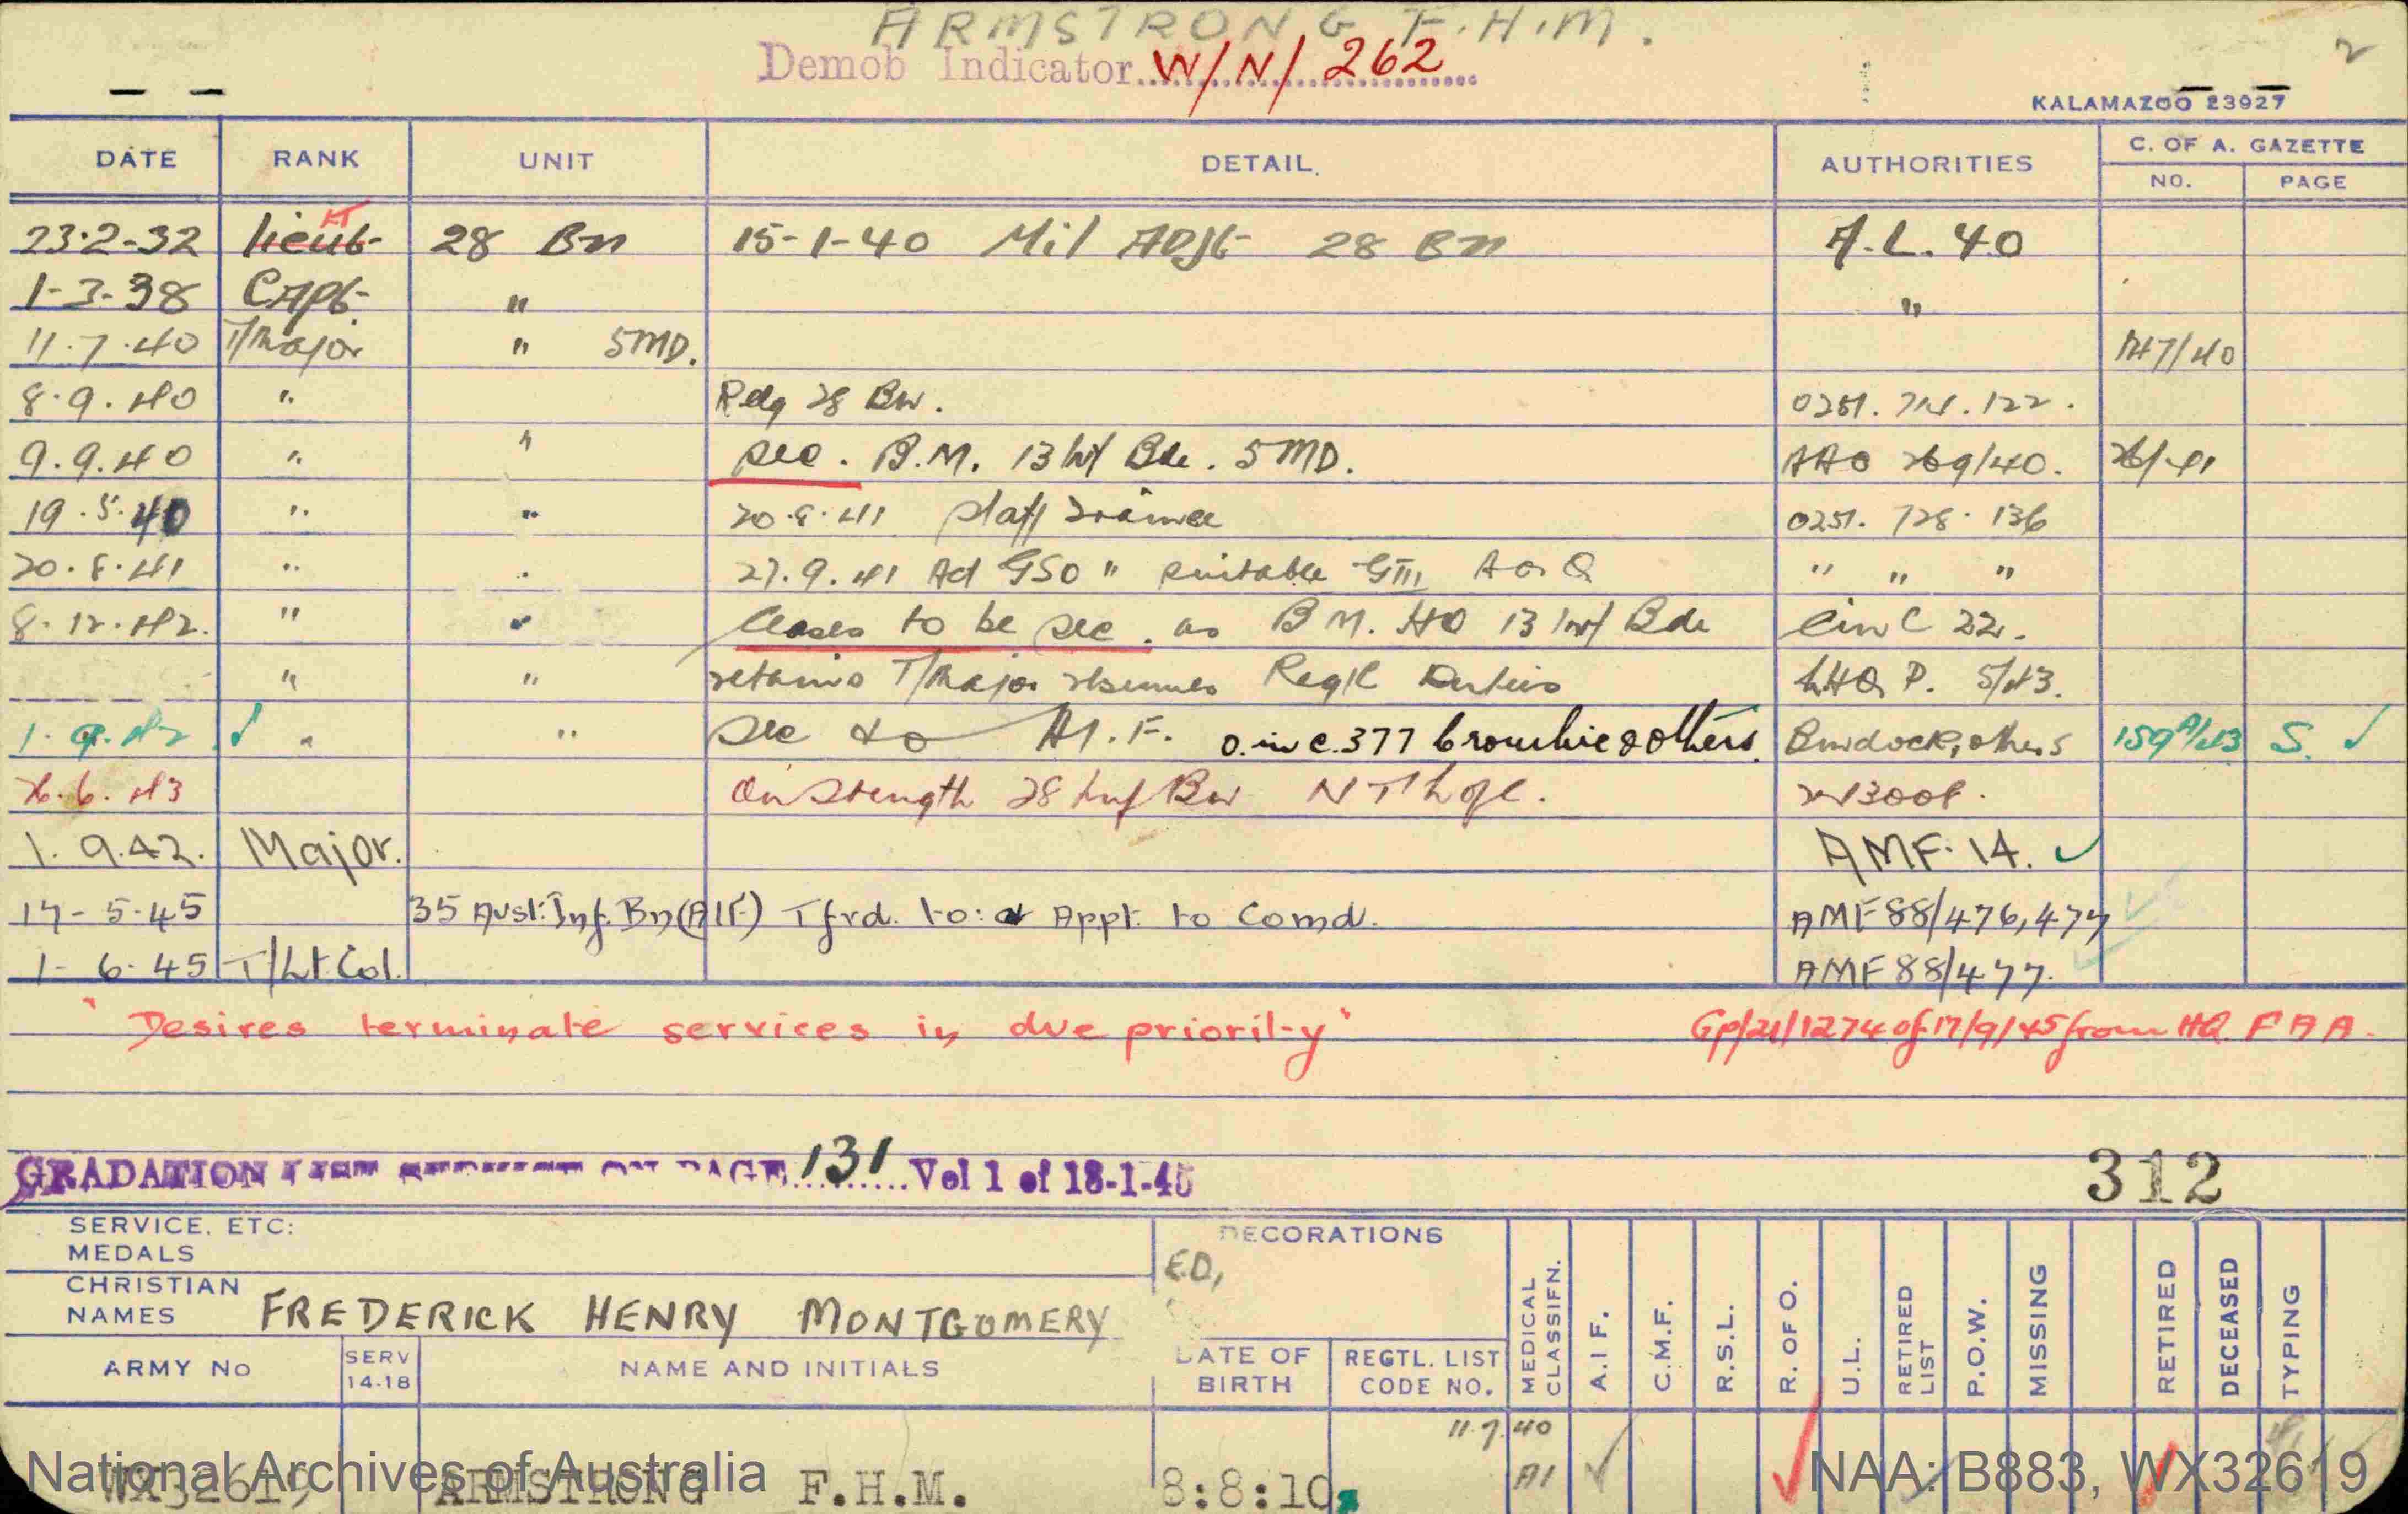 ARMSTRONG F.H.M.
2
Demob Indicator W/N/ 262
KALAMAZOO 23927
DATE RANK UNIT DETAIL. AUTHORITIES C. OF A. GAZETTE
NO. PAGE
23·2-32 lieut- LT 28 Bn 15-1-40 Mil Adjt 28 Bn A.L. 40
1-3-38 Capt- " "
11.7.40 T/Major " 5MD. 147/40
8.9.40 " Relq 28 Bn. 0251. 714. 122.
9.9.40 " " sec. B.M. 13 Inf Bde. 5MD. AAO 269/40. 26/41
19.5.40 " " 20.8.41 staff trainee 0251. 728. 136
20.8.41 " 27.9.41 Ad GSO " suitable GIII A or Q " " "
8.12.42. " " Ceases to be sec. as B M. HQ 13 Inf Bde Cin C 22.
" " retains T/Major resumes Reg'l Duties LHQ P. 5/43.
1.9.42 " " Sec to A.I.F. o.in c. 377 brownlie & others. Burdock, others 159A/43 S.
26.6.43 On Strength 28 Inf Bn N T h of c. W3008.
1.9.42. Major. AMF. 14.
17-5-45 35 Aust: Inf. Bn (AIF) Tfrd. to: & Appt. to Comd. AMF 88/476,477
1-6-45 T/Lt Col. AMF 88/477.
"Desires terminate services in due priority" Gp/21/1274 of 17/9/45 from HQ FAA.
GRADATION LIST ON PAGE 131 Vol 1 of 18-1-45
312
SERVICE, ETC:
MEDALS
DECORATIONS
E.D,
CHRISTIAN NAMES FREDERICK HENRY MONTGOMERY
ARMY No SERV 14-18 NAME AND INITIALS DATE OF BIRTH REGTL. LIST CODE NO. MEDICAL CLASSIFN. A.I F. C.M.F. R.S.L. R. OF O. U.L. RETIRED LIST P.O.W. MISSING RETIRED DECEASED TYPING
11.7.40
WX32619 ARMSTRONG F.H.M. 8:8:10 A1
National Archives of Australia NAA: B883, WX32619